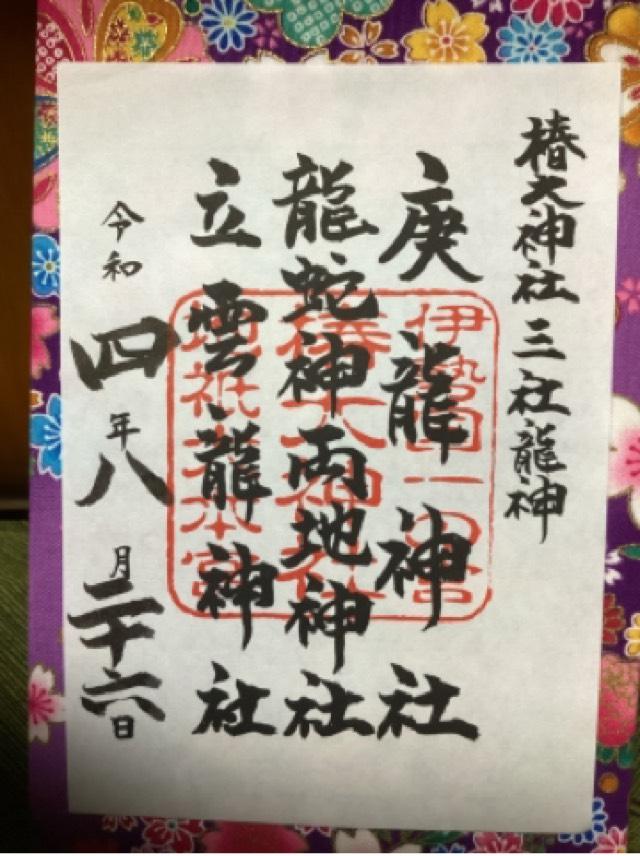 椿大神社三社龍神
庚龍神社
龍蛇神両地神社
立雲龍神社
令和四年八月二十六日
伊勢国一の宮
椿大神社
地祇大本宮